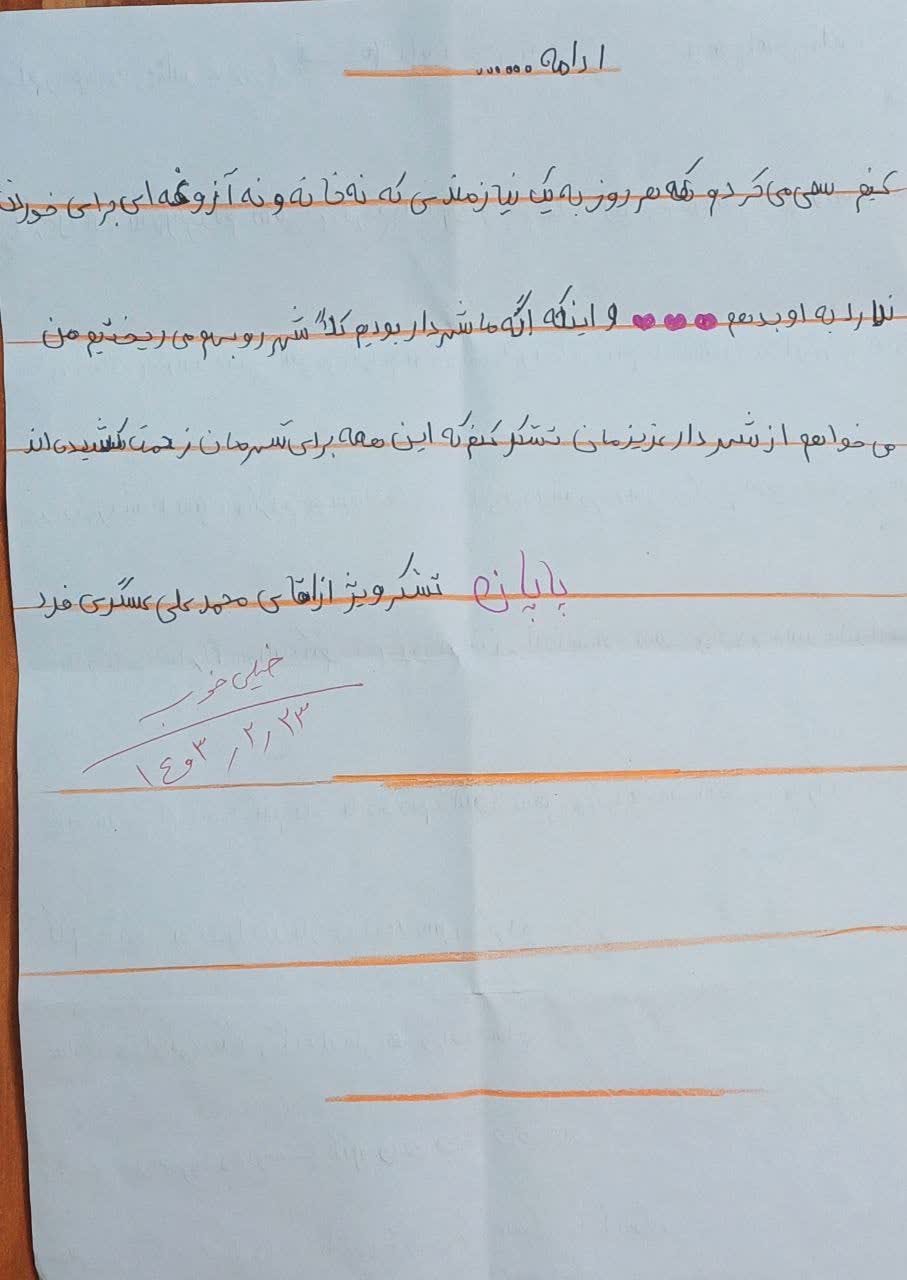 ادامه ......
کنیم سعی می کردم که هر روز به یک نیازمندی که نه خانه و نه آزوغه ای برای خوردن
ندارد به او بدهم و اینکه اگه ما شهردار بودیم کلاً شهر رو بهم می ریختیم من
می خواهم از شهردار عزیزمان تشکر کنم که این همه برای شهرمان زحمت کشیده اند
پایان تشکر ویژ از اقای محمد علی عسگری فرد
خیلی خوب
۱۴۰۳,۲,۲۳